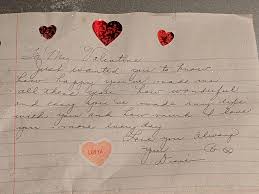 To My Valentine
just wanted you to know
how happy you've made me
all these years how wonderful
and easy you've made my life
with you and how much I love
you more everyday
Love you always
your
Diane
LUV YA